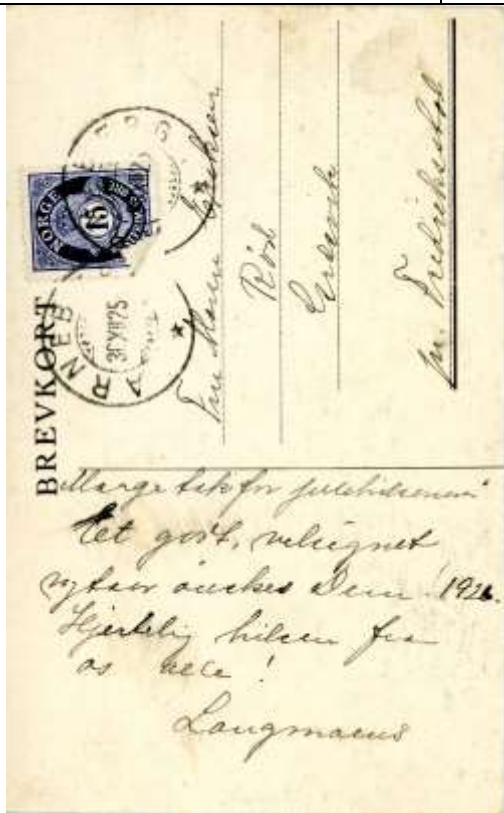 BREVKORT
NORGE
15
30 XII 25
Fru Maren
Rød
Gressvik
pr. Fredrikstad
Mange tak for julehilsenen!
Et godt, velsignet
nytaar önskes Dem 1926.
Hjertelig hilsen fra
os alle!
Langmaens